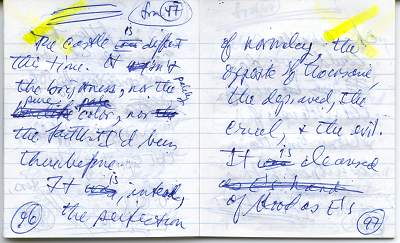 47
The castle is different
this time.
the brightness, nor the
pure
color, nor
the I'd been
there before.
It is, instead,
the perfection
96
of normalcy, the
opposite of
the depraved, the
cruel, & the evil.
It is cleansed
as E's hand
of blood as E's
97